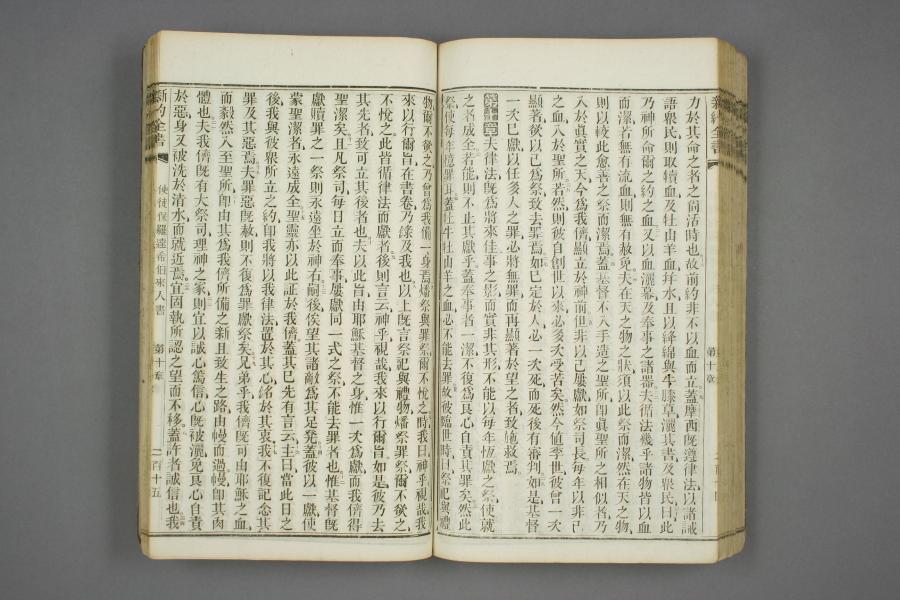 新約全書
第十章
力於其命之者之尙活時也故前約非不以血而立蓋摩西旣遵律法以諸誡
語衆民則取犢血及牡山羊血拌水且以絳綿與牛膝草灑其書及衆民曰此
乃神所命爾之約之血又以血灑幕及奉事之諸器夫循法幾乎諸物皆以血
而潔若無有流血則無有赦免夫在天之物之狀須以此祭而潔然在天之物
則以較此愈善之祭而潔焉蓋基督不入手造之聖所卽眞聖所之相似者乃
入於眞實之天今爲我儕顯立於神前但非以己屢獻如祭司長每年以非己
之血入於聖所若然則彼自創世以來必多次受苦矣然今値季世彼曾一次
顯著致以己爲祭致去罪焉如已定於人必一次死而死後有審判如是基督
一次已獻以任多人之罪必將無罪而再顯著於望之者致施救焉
夫律法旣爲將來佳事之影而實非其形不能以每年恆獻之祭使就
之者成全若能則不止其獻乎蓋奉事者一潔不復爲良心自責其罪矣然此
祭使每年憶罪耳蓋牡牛牡山羊之血必不能去罪故彼臨世時曰祭祀與禮
物爾不欲之乃曾爲我備一身焉燔祭與罪祭爾不悅之時我曰神乎視哉我
來以行爾旨在書卷乃錄及我也以上旣言祭祀與禮物燔祭罪祭爾不欲之
不悅之此皆循律法而獻者後則言云神乎視哉我來以行爾旨如是彼乃去
其先者致可立其後者也夫以此旨由耶穌基督之身惟一次爲獻而我儕得
聖潔矣且凡祭司每日立而奉事屢獻同一式之祭不能去罪者也惟基督旣
獻贖罪之一祭則永遠坐於神右嗣後俟望其諸敵爲其足凳蓋彼以一獻使
蒙聖潔者永遠成全聖靈亦以此証於我儕蓋其已先有言云主曰當此日之
後我與彼衆所立之約卽我將以我律法置於其心銘於其衷我不復記念其
罪及其惡焉夫罪惡旣赦則不復爲罪獻祭矣兄弟乎我儕旣可由耶穌之血
而毅然入至聖所卽由其爲我儕所備之新且致生之路由幔而過幔卽其肉
體也夫我儕旣有大祭司理神之家則宜以誠心篤信心旣被灑免良心自責
於惡身又被洗於淸水而就近焉宜固執所認之望而不移蓋許者誠信也我
新約全書
使徒保羅達希伯來人書
第十章
二百十五